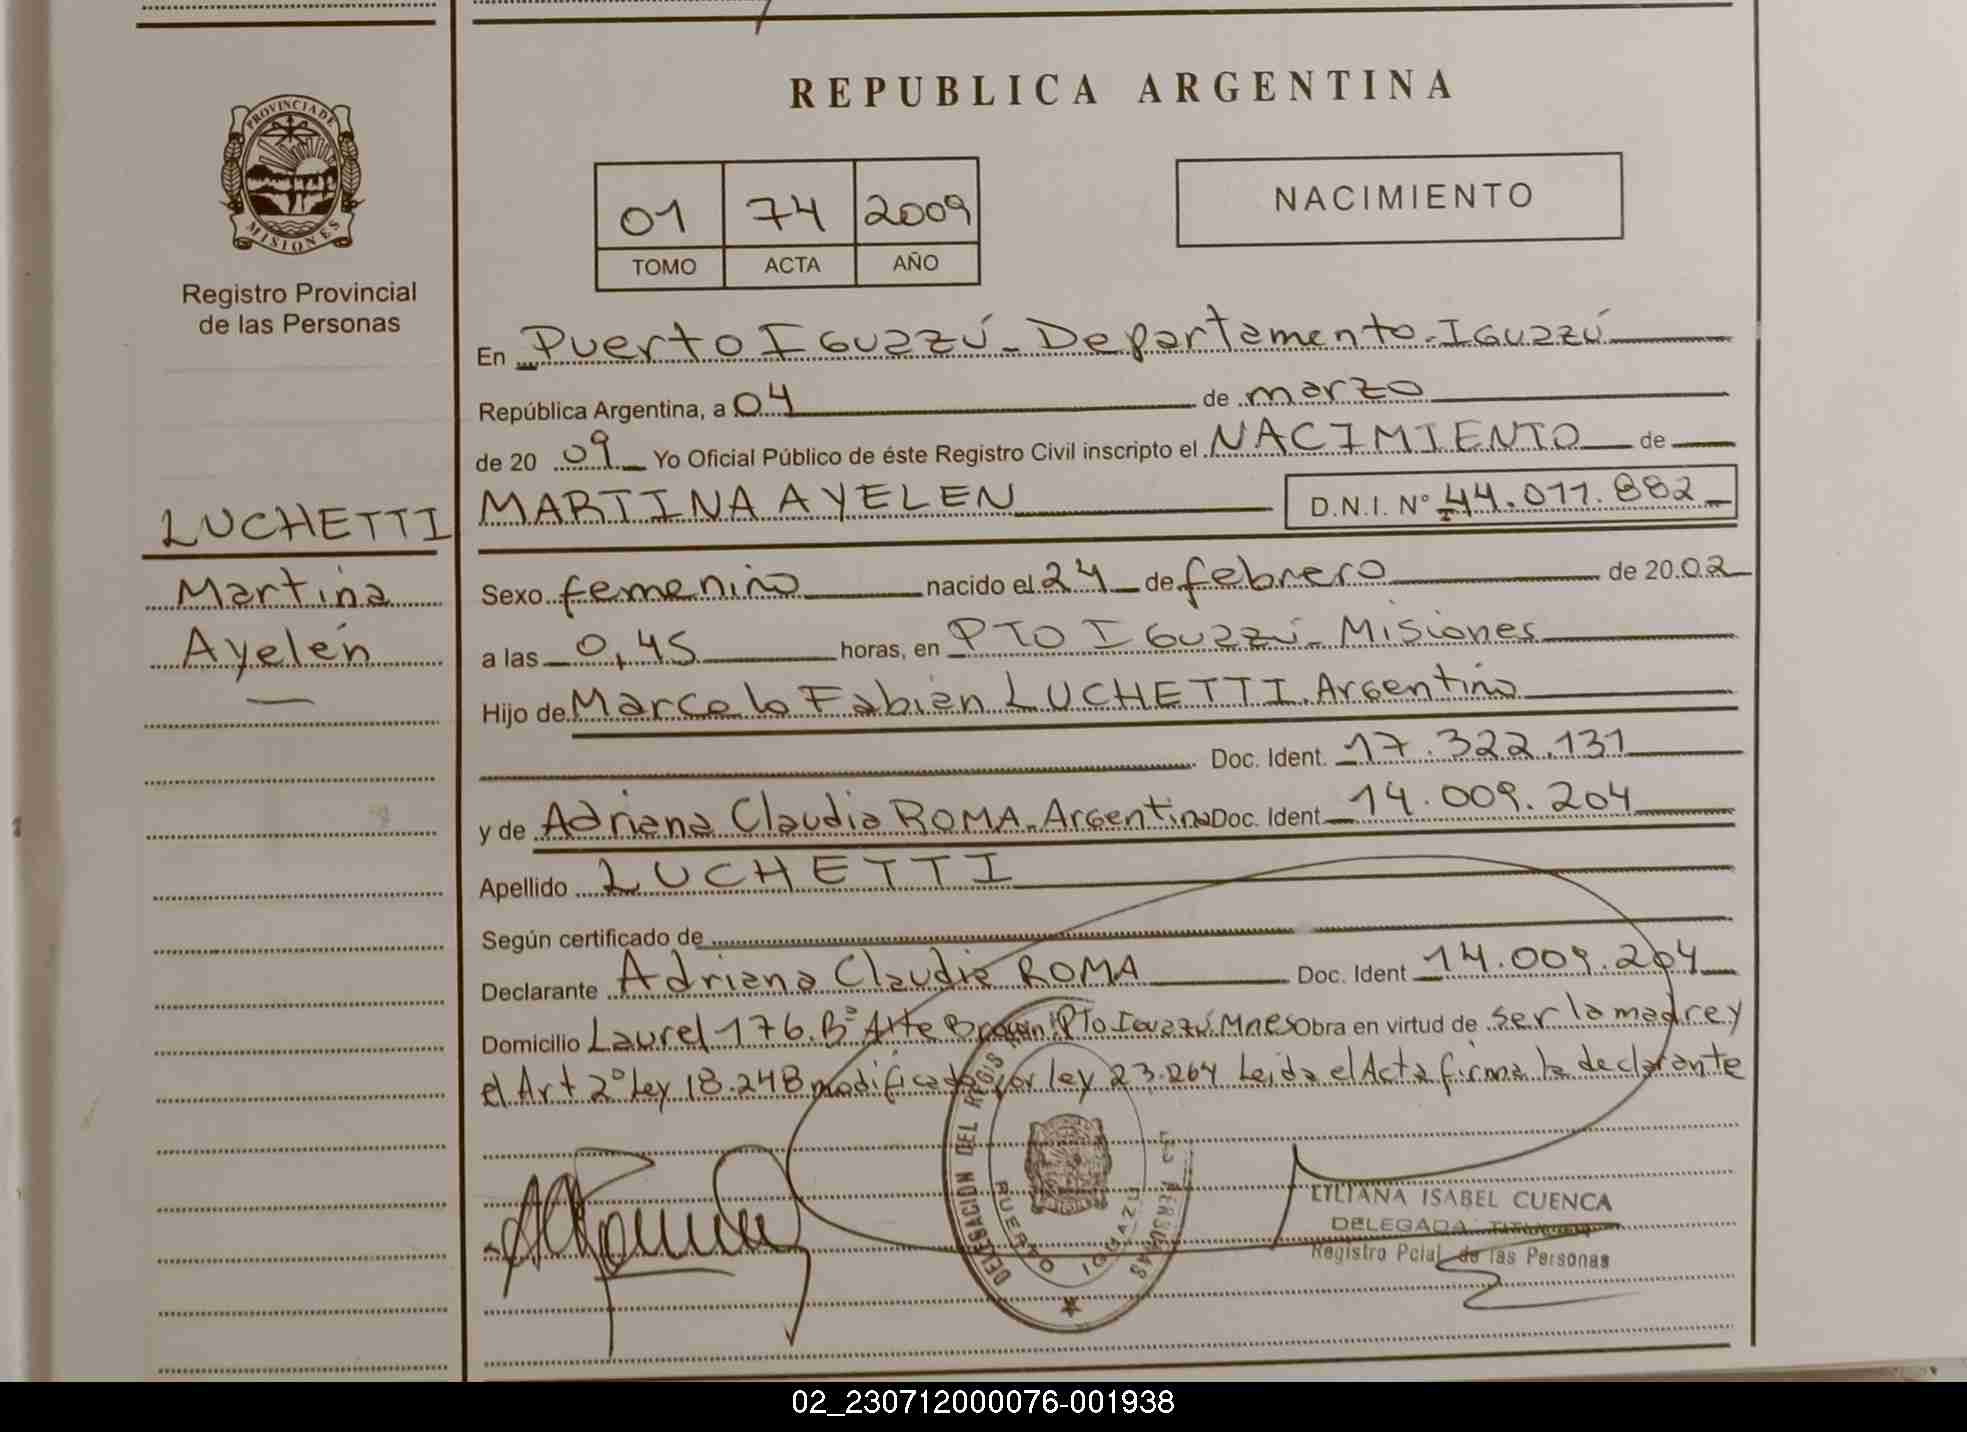 REPUBLICA ARGENTINA
PROVINCIA DE
MISIONES
Registro Provincial
de las Personas
01 74 2009
TOMO ACTA AÑO
NACIMIENTO
LUCHETTI
Martina
Ayelén
En Puerto Iguazú - Departamento - Iguazú
República Argentina, a 04 de marzo
de 20 09 Yo Oficial Público de éste Registro Civil inscripto el NACIMIENTO de
MARTINA AYELEN D.N.I. Nº 44.011.882
Sexo femenino nacido el 24 de febrero de 20 02
a las 0,45 horas, en PTO Iguazú - Misiones
Hijo de Marcelo Fabian LUCHETTI. Argentino
Doc. Ident. 17.322.131
y de Adriana Claudia ROMA - Argentina Doc. Ident 14.009.204
Apellido LUCHETTI
Según certificado de
Declarante Adriana Claudia ROMA Doc. Ident 14.009.204
Domicilio Laurel 176. Bº Alte Brown Pto Iguazú Mnes Obra en virtud de ser la madre y
el Art 2º Ley 18.248 modificada por ley 23.264 Leida el Acta firma la declarante
DELEGACION DEL REGIS PERSONAS
PUERTO IGUAZU
LILIANA ISABEL CUENCA
DELEGADA
Registro Pcial. de las Personas
02_230712000076-001938